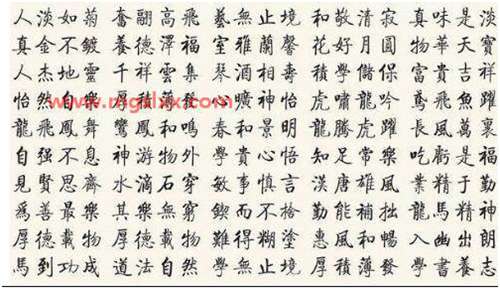 人淡如菊 奮翮高飛 藝無止境 和敬清寂 真味是淡
真金不鍍 養德澤福 室雅蘭馨 花好月圓 物華天寶
人杰地靈 千祥雲集 琴酒相壽 學儲保 富貴吉祥
怡然自樂 厚積薄發 心曠神怡 虎嘯龍吟 鳶飛魚躍
龍飛鳳舞 鸞鳳和鳴 春和景明 龍騰虎躍 長風萬裏
自强不息 神游物外 學貴心悟 知足常樂 吃虧是福
見賢思齊 水滴石穿 敏事慎言 漢唐雄風 業精于勤
爲善最樂 其樂無窮 鍥而不捨 勤能補拙 龍馬精神
厚德載物 厚德載物 難得糊塗 惠風和暢 入幽出朗
馬到功成 道法自然 學無止境 厚積薄發 學書養志
www.mgxlxx.com